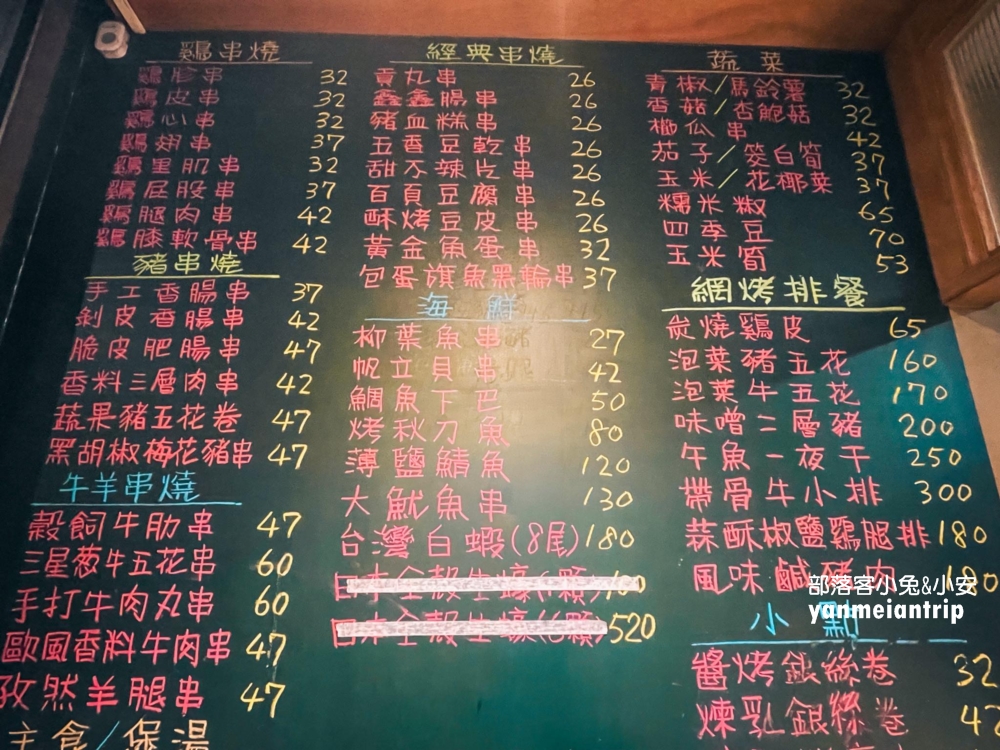 鷄串燒
鷄胗串 32
鷄皮串 32
鷄心串 32
鷄翅串 37
鷄里肌串 32
鷄屁股串 37
鷄腿肉串 42
鷄膝軟骨串 42
豬串燒
手工香腸串 37
剝皮香腸串 42
脆皮肥腸串 47
香料三層肉串 42
蔬果豬五花卷 47
黑胡椒梅花豬串 47
牛羊串燒
穀飼牛肋串 47
三星葱牛五花串 60
手打牛肉丸串 60
歐風香料牛肉串 47
孜然羊腿串 47
主食/煲湯
經典串燒
貢丸串 26
鑫鑫腸串 26
豬血糕串 26
五香豆乾串 26
甜不辣片串 26
百頁豆腐串 26
酥烤豆皮串 26
黃金魚蛋串 32
包蛋旗魚黑輪串 37
海鮮
柳葉魚串 27
帆立貝串 42
鯛魚下巴 50
烤秋刀魚 80
薄鹽鯖魚 120
大魷魚串 130
台灣白蝦(8尾) 180
日本全殼生蠔(1顆) 100
日本全殼生蠔(6顆) 520
蔬菜
青椒/馬鈴薯 32
香菇/杏鮑菇 32
櫛瓜串 42
茄子/筊白筍 37
玉米/花椰菜 37
糯米椒 65
四季豆 70
玉米筍 53
網烤排餐
炭燒鷄皮 65
泡菜豬五花 160
泡菜牛五花 170
味噌二層豬 200
午魚一夜干 250
帶骨牛小排 300
蒜酥椒鹽鷄腿排 180
風味鹹豬肉 180
部落客小兔&小安
yanmeiantrip
小點
醬烤銀絲卷 32
煉乳銀絲卷 42